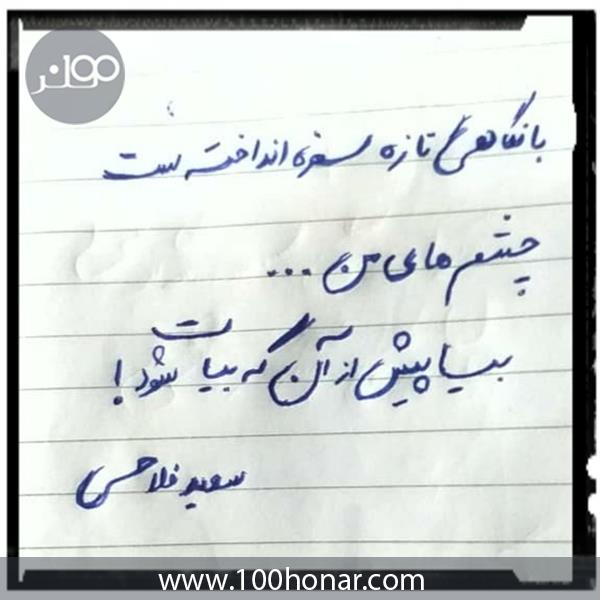 صدهنر
با نگاهی تازه سفره انداخته ست
چشم های من ...
بیا پیش از آن که بیات شود!
سعید فلاحی
www.100honar.com